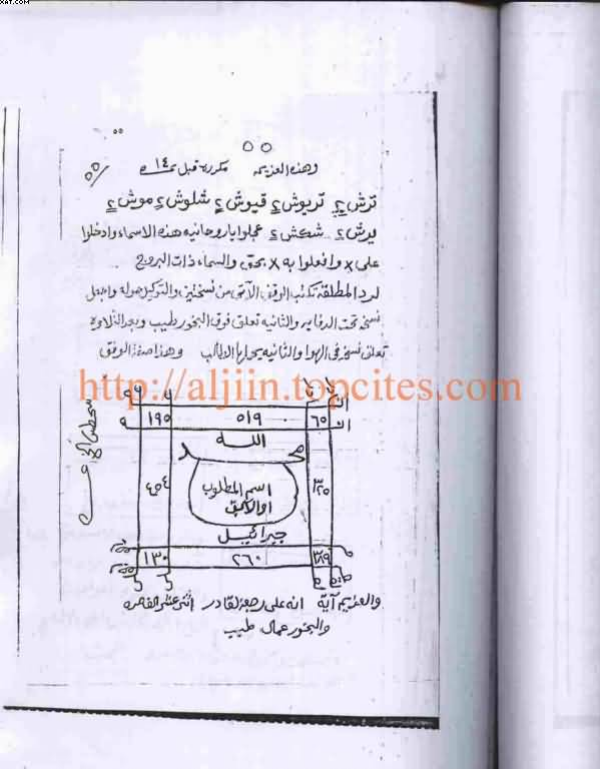 xat.com
وهذه العزيمه مكررة قبل ١٤
ترش ٢ تريوش ٢ قيوش ٢ شلوش ٢ موش ٢
يرش ٢ شكش ٢ عجلوا ياروحانيه هذه الاسماء وادخلوا
على x وافعلوا به x بحق والسماء ذات البروج
لرد المطلقة تكتب الوفق الآتى من نسختين والتوكيل حوله واجعل
نسخه تحت الدفايه والثانيه تعلق فوق البخور طيب وبعد التلاوه
تعلق نسخه فى الهوا والثانيه يحملها الطالب وهذا صفة الوفق
http://aljiin.topcites.com
١٩٥ ٥١٩ ٦٥
الله
محمد
اسم المطلوب
جبرائيل
١٣٠ ٢٦٠
والعزيمه آية انه على رجعه لقادر اثنى عشر الف مره
والبخور عمال طيب